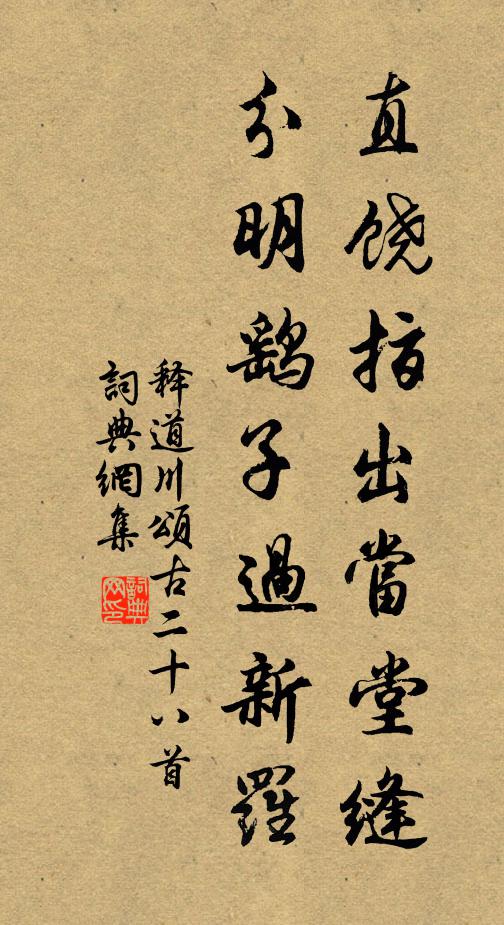 直饶指出當堂縫
分明鷂子過新羅
释道川頌古二十八首
詞典網集
詞典网印